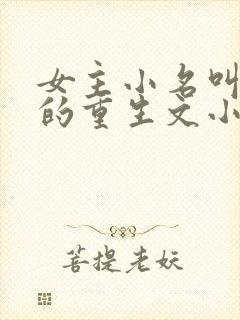 女主小名叫
的重生文小
菩提老妖